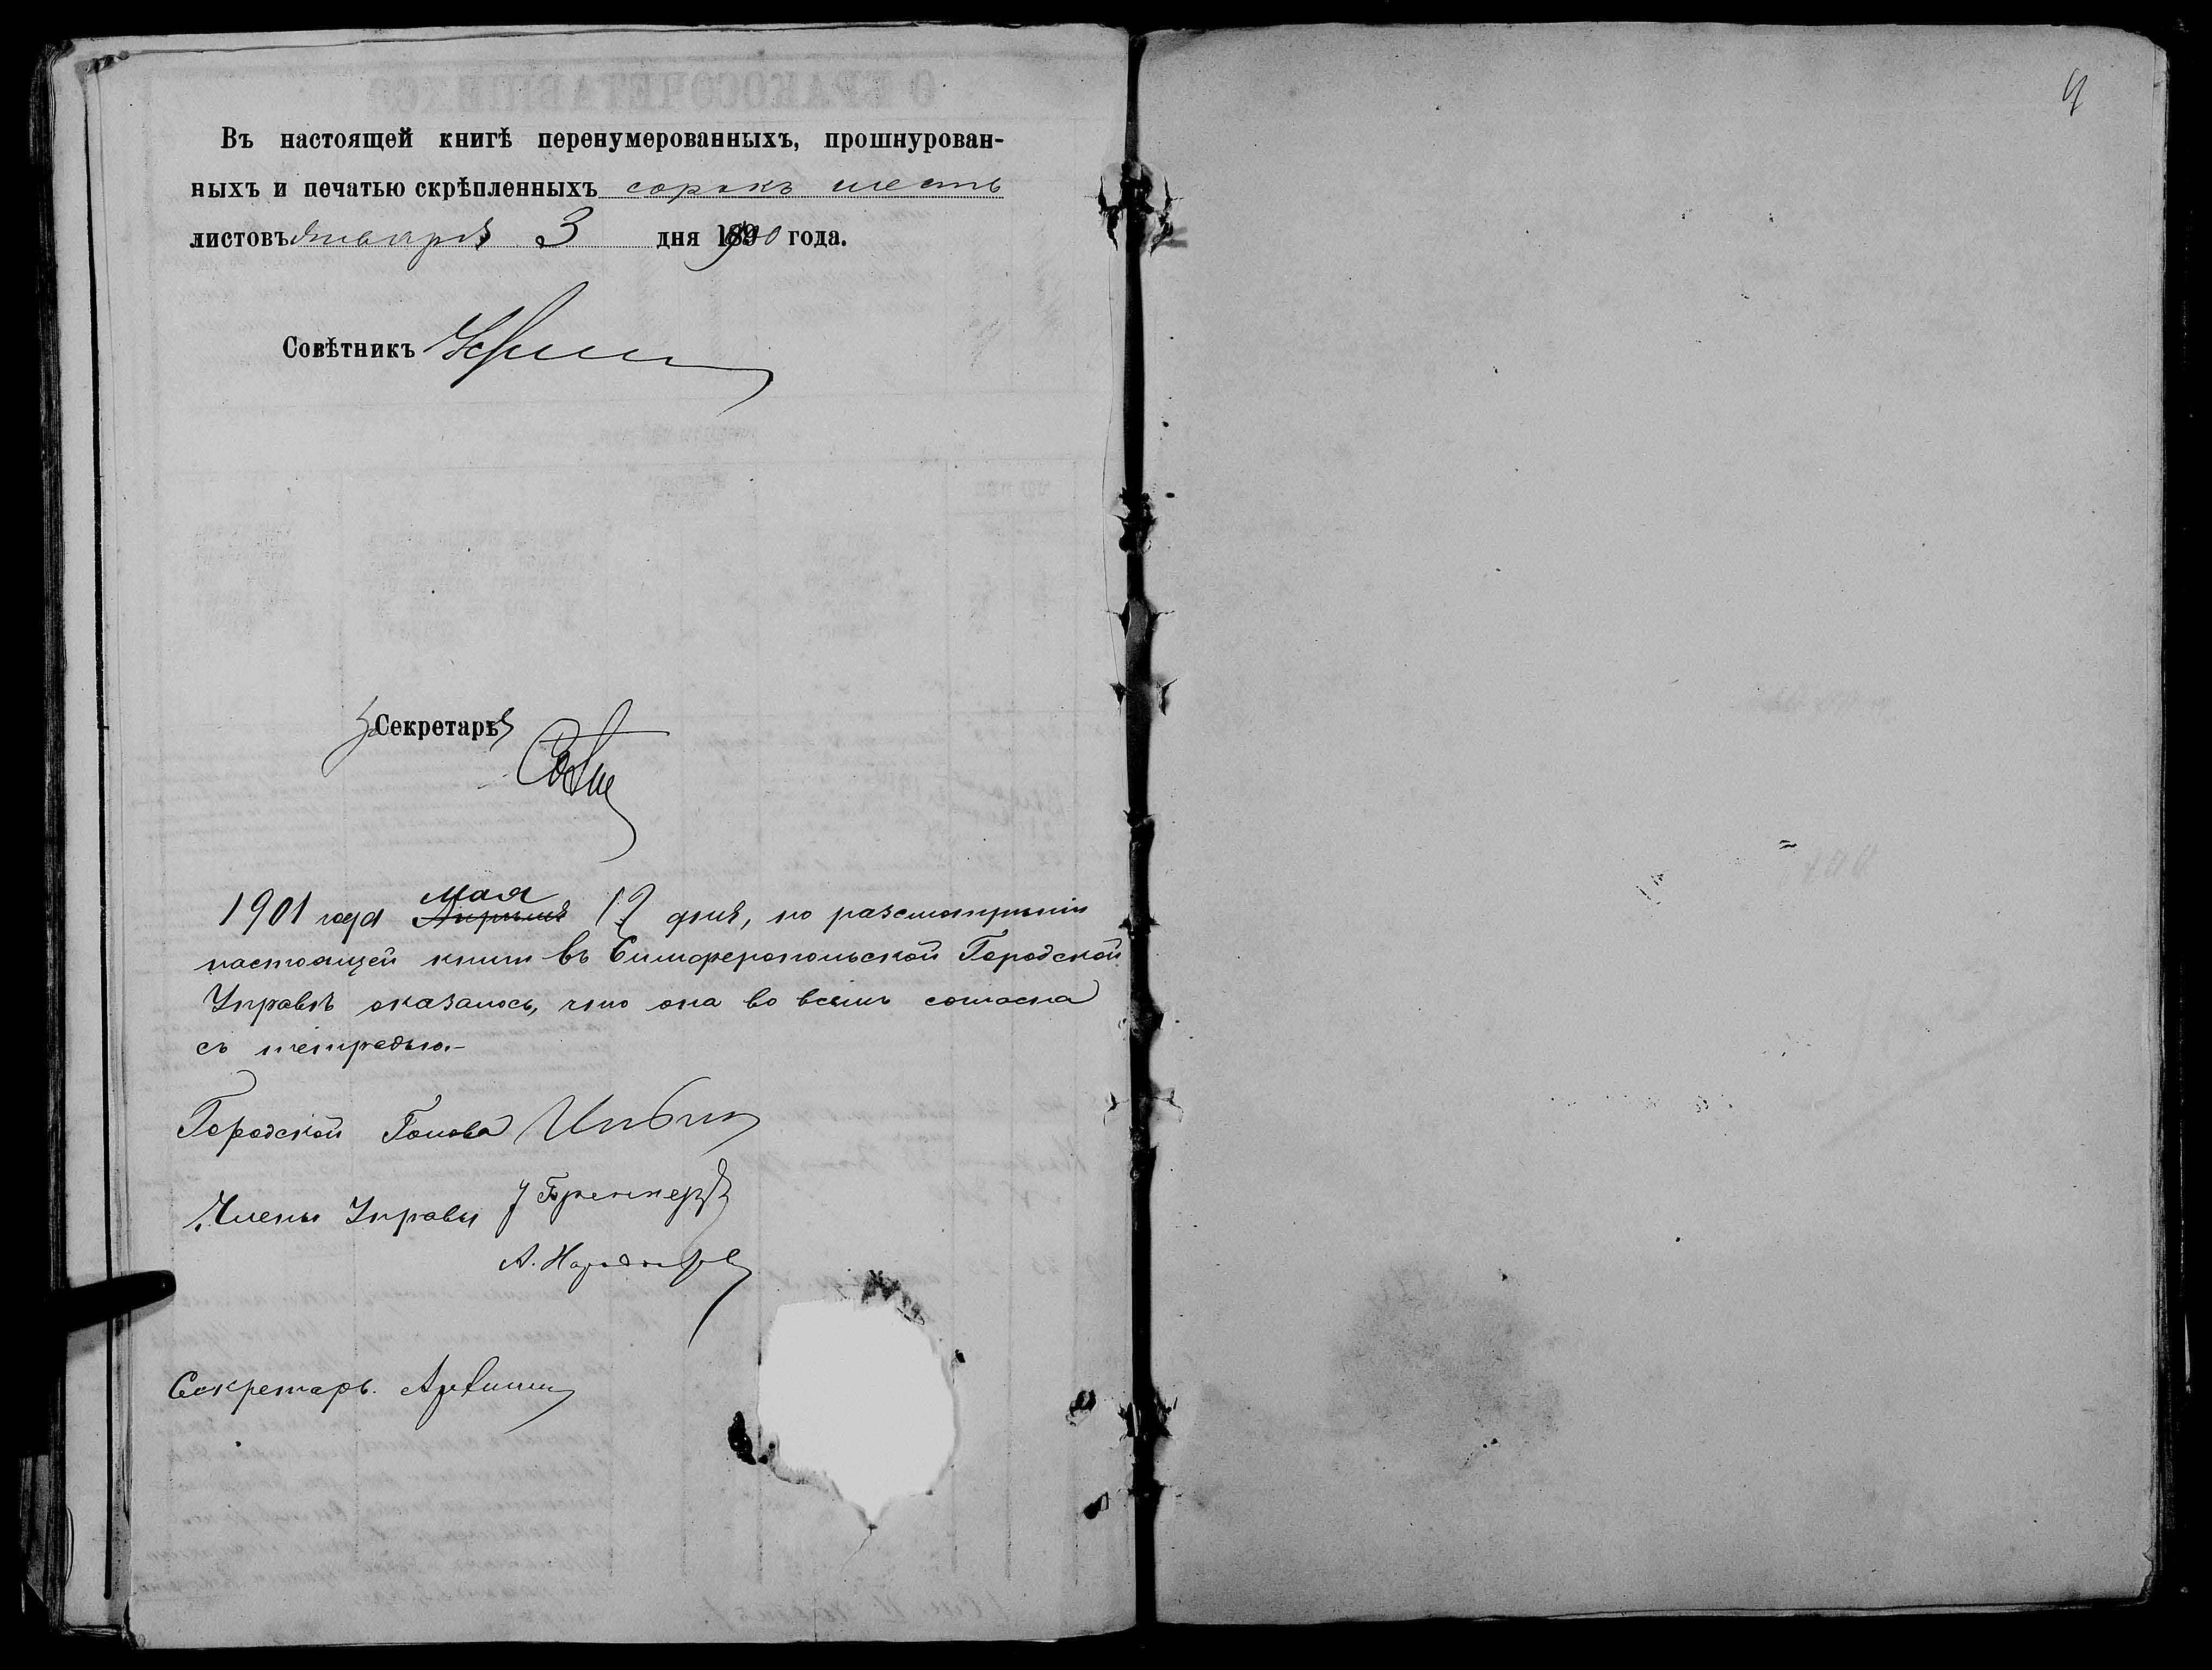 Въ настоящей книгѣ перенумерованныхъ, прошнурован-
ныхъ и печатью скрѣпленныхъ сорокъ шесть
листовъ Января 3 дня 1900 года.
Совѣтникъ
За Секретаря
1901 года Апрѣля Мая 12 дня, по разсмотрѣніи
настоящей книги въ Симферопольской Городской
Управѣ оказалось, что она во всемъ согласна
съ тетрадью.-
Городской Голова
Члены Управы
Секретарь.